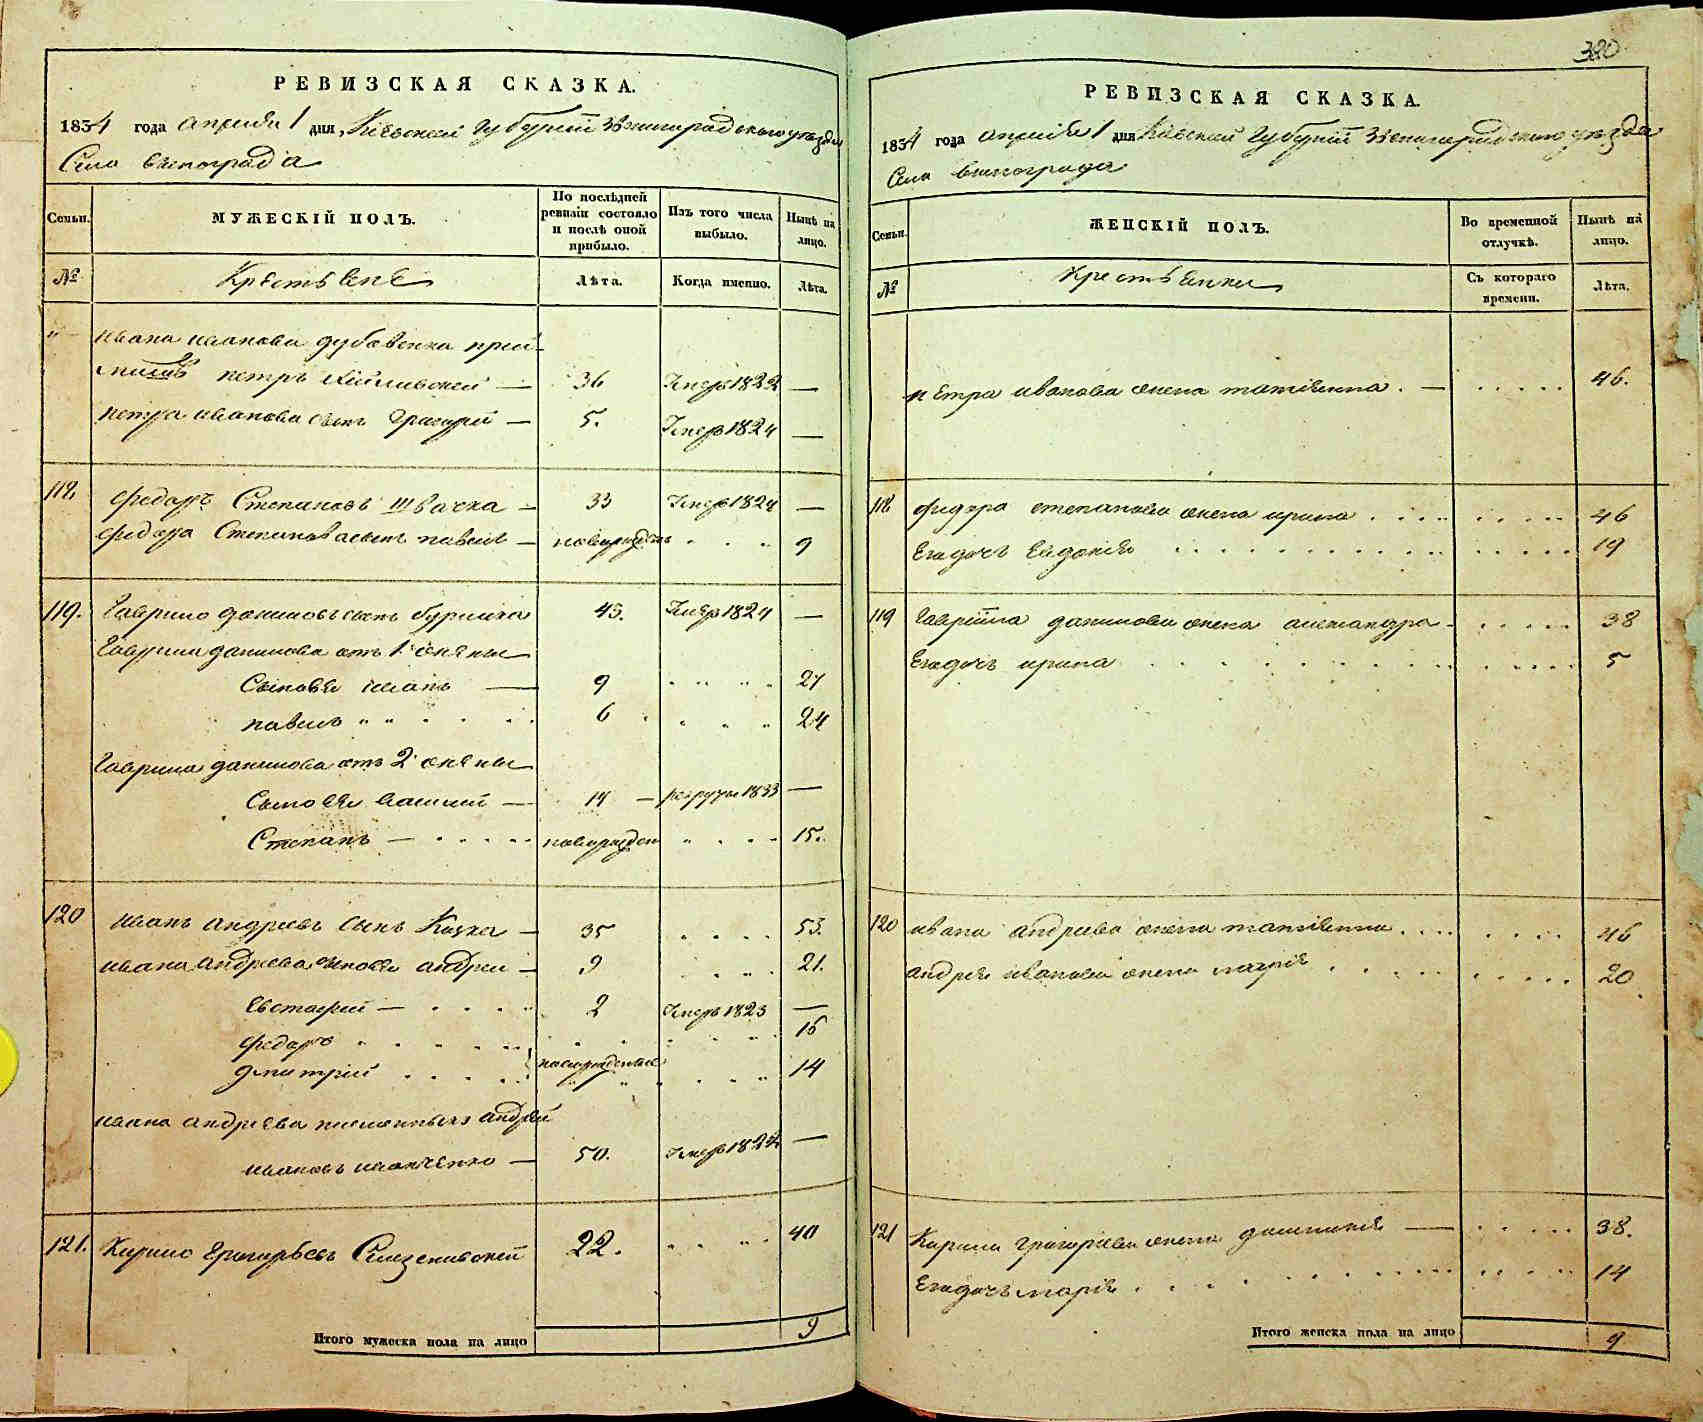 РЕВИЗСКАЯ СКАЗКА.
1834 года апреля 1 дня Киевской Губернии Звенигородского уезда
Села Винограда
Семьи. МУЖЕСКІЙ ПОЛЪ. По послѣдней ревизіи состояло и послѣ оной прибыло. Изъ того числа выбыло. Нынѣ на лицо.
№ Крестьяне Лѣта. Когда именно. Лѣта.
Ивана Иванова Дубовенка
Петръ 36 Умеръ 1822 —
Петра Иванова сынъ Григорий — 5. Умеръ 1824 —
118 Федоръ Степановъ Швачка — 33 Умеръ 1824 —
Федора Степанова сынъ Павелъ — новорожденъ 9
119. Гаврило Даниловъ сынъ Бурлака 45. Умеръ 1824 —
Гаврила Данилова отъ 1 жены
Сыновья Иванъ — 9 27
Павелъ 6 24
Гаврила Данилова отъ 2 жены
Сыновья Василий — 14 — рекруты 1833 —
Степанъ — новорожден 15.
120 Иванъ Андреевъ сынъ Козка — 35 53.
Ивана Андреева сыновья Андрей — 9 21.
Евстафий — 2 Умеръ 1823 —
Федоръ 16
Дмитрий новорожденные 14
Ивана Андреева племянникъ Андрей
Ивановъ Иванченко — 50. Умеръ 1824 —
121. Кирило Григорьевъ 22. 40
Итого мужеска пола на лицо 9
320
РЕВИЗСКАЯ СКАЗКА.
1834 года апреля 1 дня Киевской Губернии Звенигородского уезда
Села Винограда
Семьи. ЖЕНСКІЙ ПОЛЪ. Во временной отлучкѣ. Нынѣ на лицо.
№ Крестьянки Съ котораго времени. Лѣта.
Петра Иванова жена Татиянна. — 46.
118 Федора Степанова жена Ирина 46
Егадочь Евдокия 19
119 Гаврила Данилова жена Александра 38
Егадочь Ирина 5
120 Ивана Андреева жена Татиянна 46
Андрея Иванова жена Мария 20
121 Кирила Григориева жена — 38.
Егадочь Мария 14
Итого женска пола на лицо 9